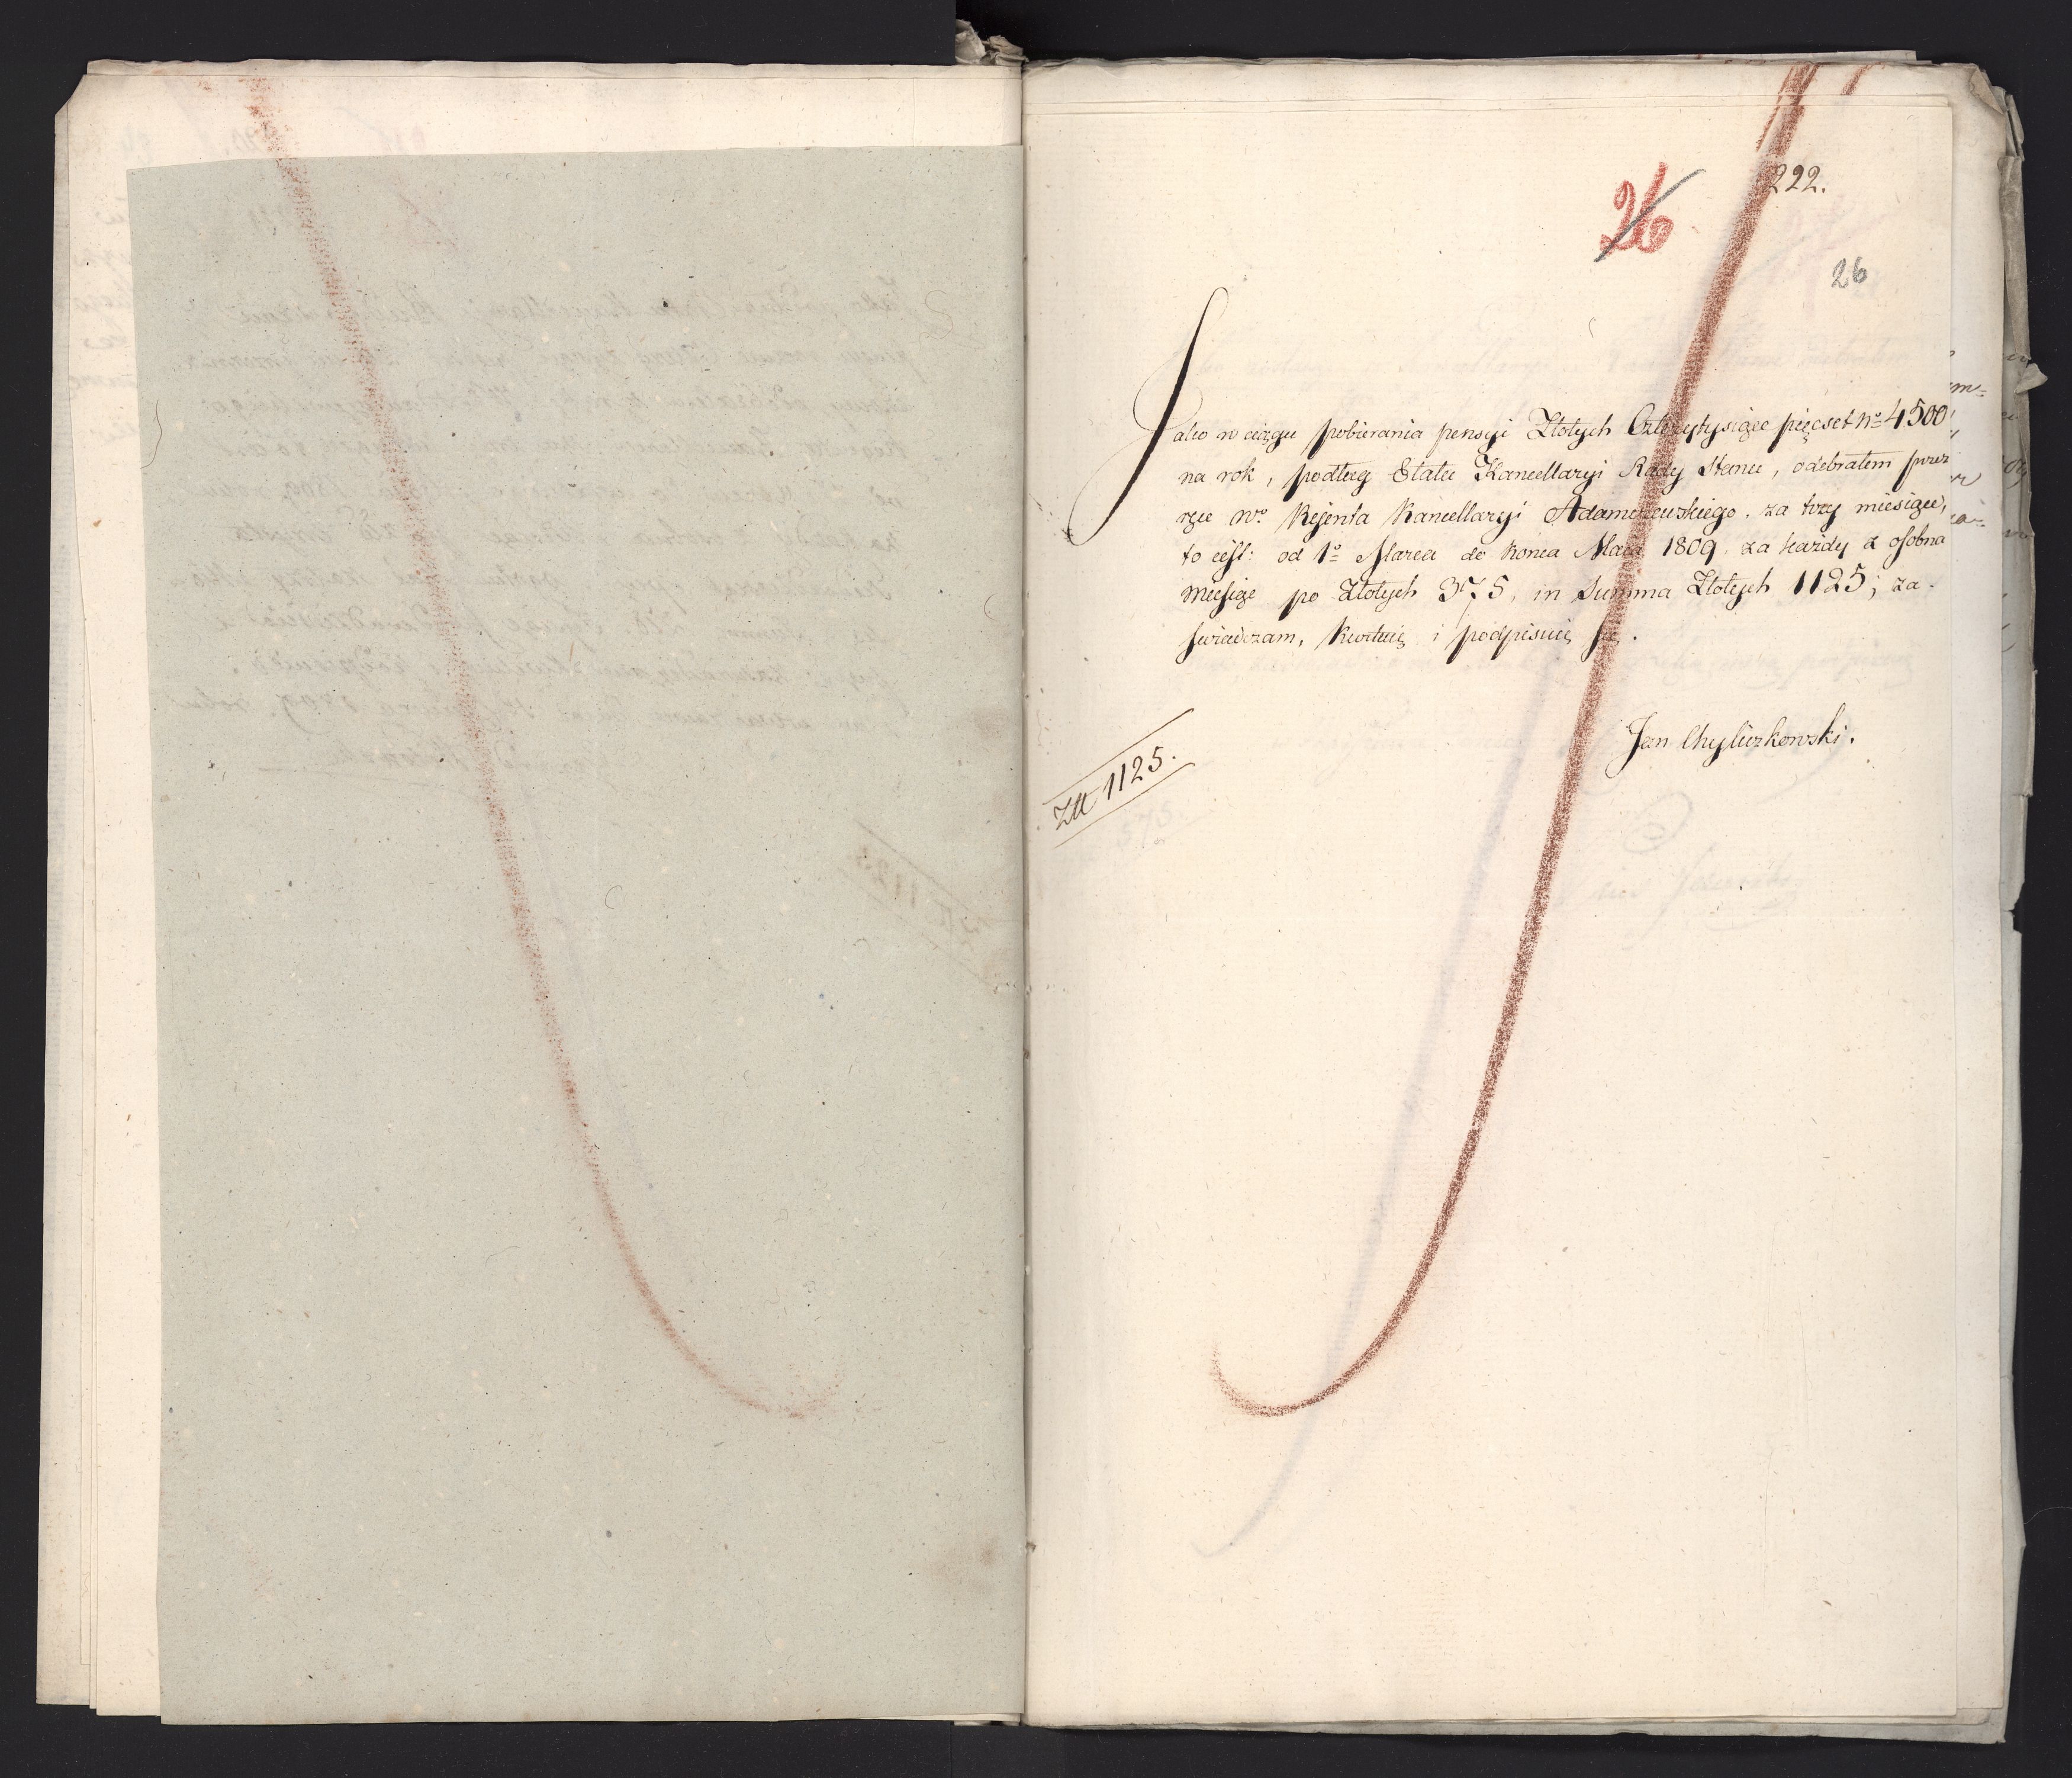 222.
26
26
Jako w ciągu pobierania pensyi Złotych Czterytysiące pięcset No 4500
na rok, podług Etatu Kancellaryi Rady Stanu, odebrałem przez
ręce Wo Rejenta Kancellaryi Adamczewskiego. za trzy miesiące,
to iest: od 1o Marca do końca Maia 1809. za każdy z osobna
Miesiąc po Złotych 375, in Summa Złotych 1125; za-
świadczam, kwituię i podpisuię się.
Jan Chyliczkowski.
Złł 1125.